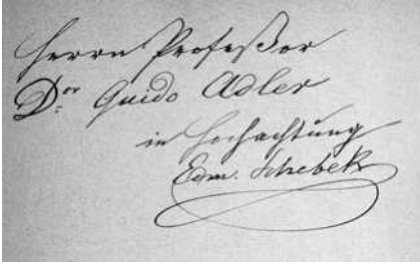 Herrn Profeßor
Dr. Guido Adler
in Hochachtung
Edm. Schebek